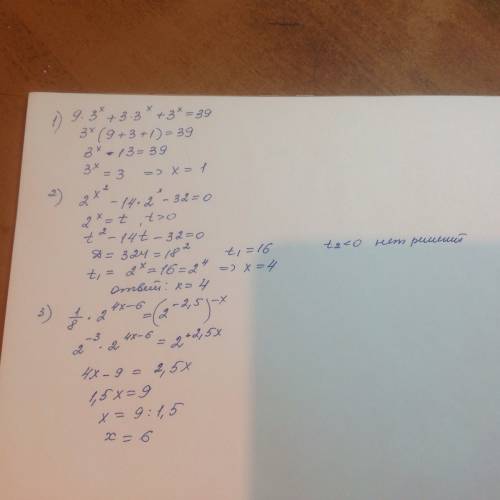 1) 9·3ˣ+3·3ˣ+3ˣ=39
3ˣ(9+3+1)=39
3ˣ·13=39
3ˣ=3 => x=1
2) 2ˣ²-14·2ˣ-32=0
2ˣ=t, t>0
t²-14t-32=0
D=324=18² t₁=16 t₂<0 нет решений
t₁= 2ˣ=16=2⁴ => x=4
ответ: x=4
3) 1/8·2⁴ˣ⁻⁶=(2⁻²,⁵)⁻ˣ
2⁻³·2⁴ˣ⁻⁶=2⁺²,⁵ˣ
4x-9=2,5x
1,5x=9
x=9:1,5
x=6